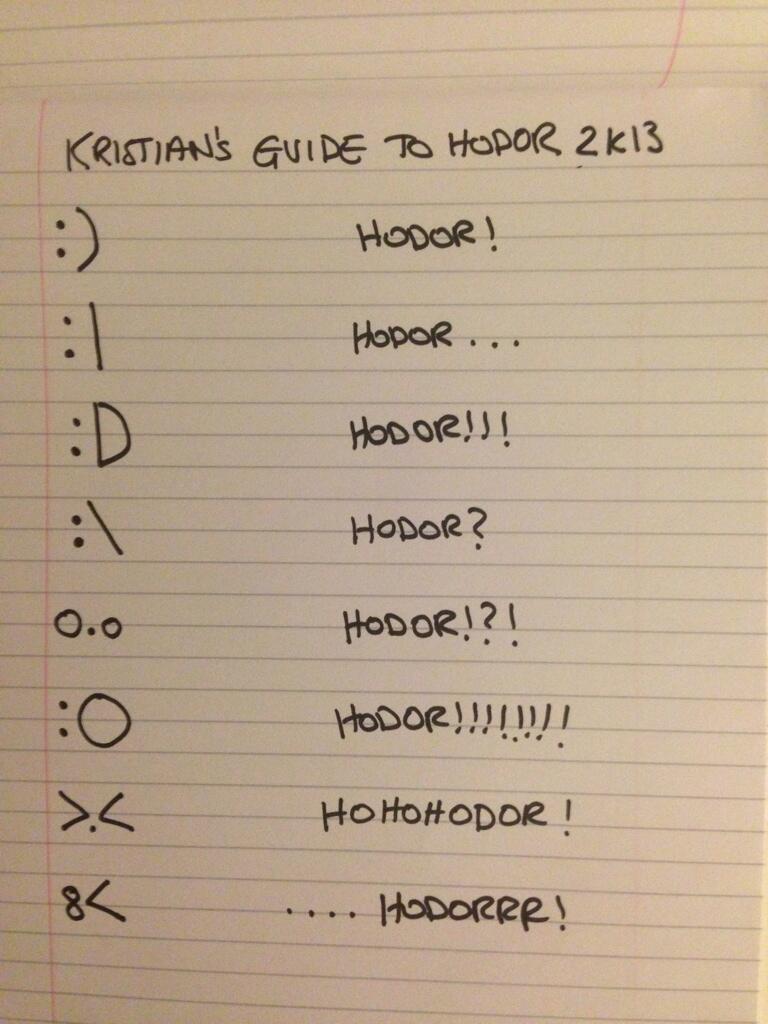 KRISTIAN'S GUIDE TO HODOR 2K13
:) HODOR!
:| HODOR...
:D HODOR!!!
:\ HODOR?
O.o HODOR!?!
:O HODOR!!!!!!!!
>.< HOHOHODOR!
8< ....HODORRR!